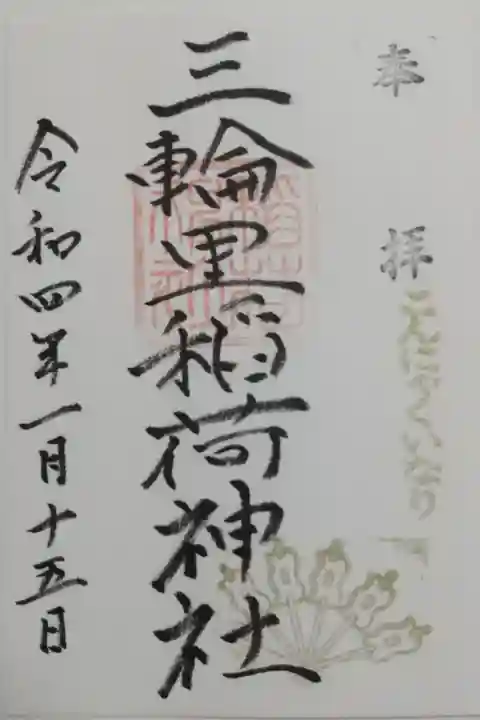 奉拝
こんにゃくいなり
三輪里稲荷神社
令和四年一月十五日